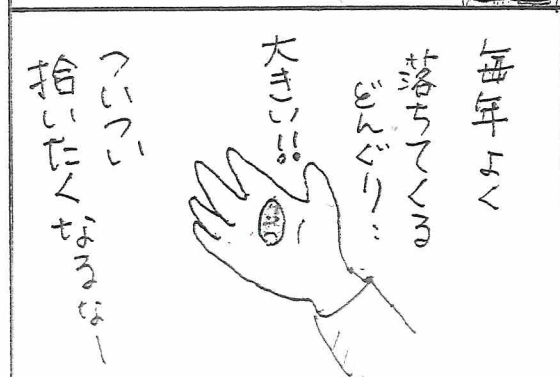 毎年よく
落ちてくる
どんぐり…
大きい!!
ついつい
拾いたくなるなー